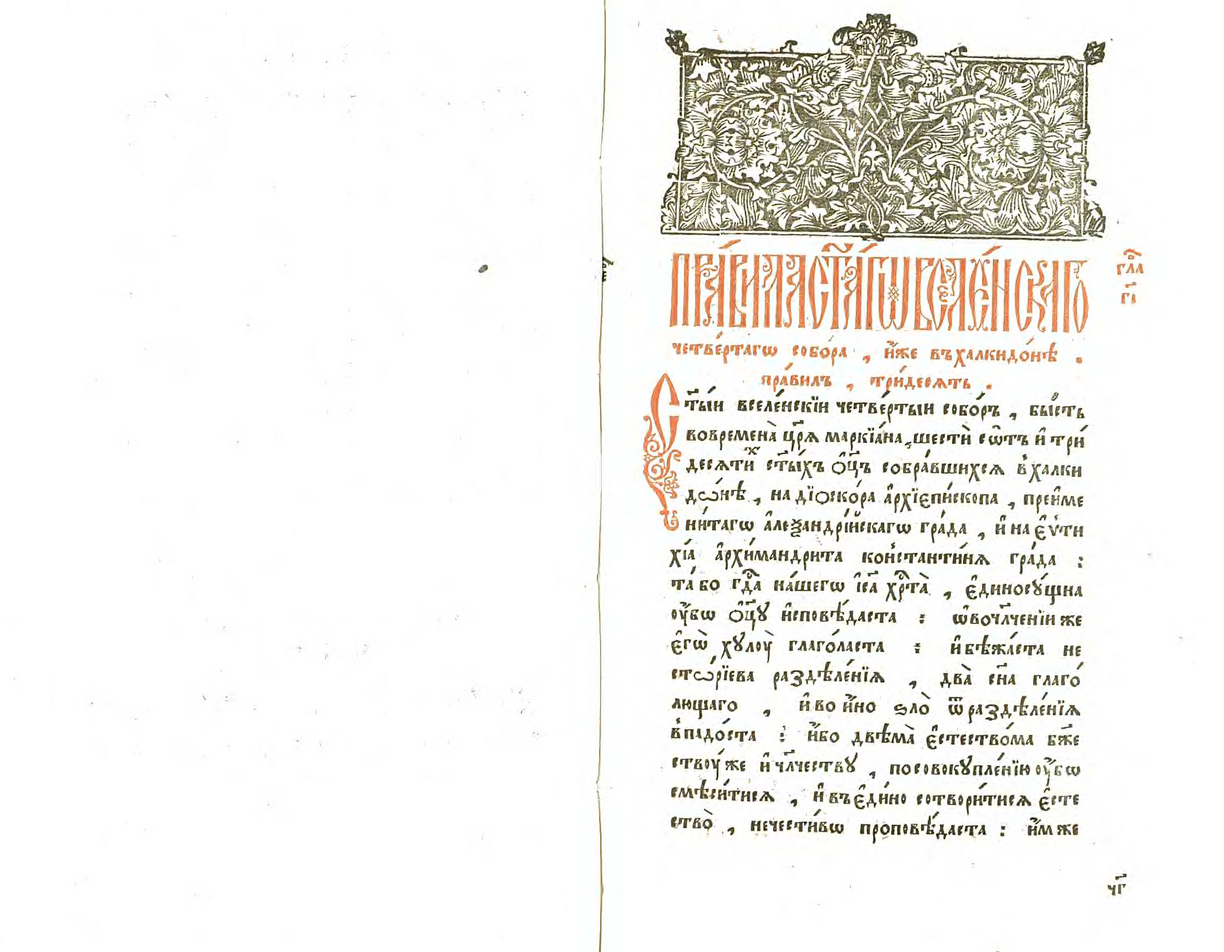 пра́вила ст҃а́гѡ вселе́нскагѡ
гла
г҃і
четве́ртагѡ собо́ра , и҆́же въ халкидо́нѣ .
пра́вилъ , три́десѧть .
Ст҃ы́и вселе́нскїи четве́ртыи собо́ръ , бы́сть
во времена̀ цр҃ѧ̀ маркїа́на , шестѝ сѡ́тъ и҆ три́
десѧти ст҃ы́хъ ѻ҆ц҃ъ собра́вшихсѧ в халки
до́нѣ , на дїѻско́ра а҆рхїепи́скопа , преиме
ни́таго а҆леѯандрі́йскагѡ гра́да , и҆ на є҆ѵти
хі́а а҆рхимандри́та константи́нѧ гра́да :
та́ бо гд҇а на́шегѡ і҆са хрт҇а̀ , є҆диносу́щна
оу҆́бѡ ѻ҆ц҃у̀ и҆сповѣ́даста : ѡ вочл҃че́нїи же
є҆гѡ̀ хꙋлоу̀ глаго́ласта : и҆ бѣжа́ста не
сто́рїева раздѣле́нїѧ , два̀ сн҃а глаго́
лющаго , и҆ во и҆́но ѕло̀ ѿ раздѣле́нїѧ
впадо́ста : и҆́бо двѣма̀ є҆стество́ма бж҃е
ствоу́ же и҆ чл҃честву̀ , по совокꙋпле́нїю оу҆́бѡ
смѣси́тисѧ , и҆ въ є҆ди́но сотвори́тисѧ є҆сте
ство̀ , нечести́вѡ проповѣ́даста : и҆́мже
ч҃г